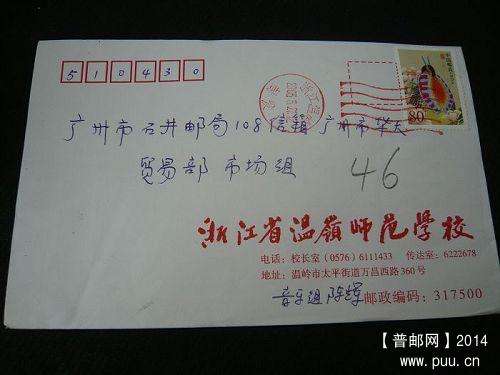 510430
80
广州市石井邮局108信箱 广州市华天
贸易部 市场组
46
浙江省温岭师范学校
电话：校长室（0576）6111433 传达室：6222678
地址：温岭市太平街道万昌西路360号
音乐组 陈辉 邮政编码：317500
【普邮网】2014
www.puu.cn